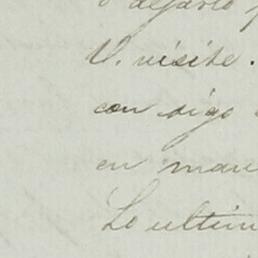 o dejarlo
V. visite.
con sigo
en man
Lo ultim